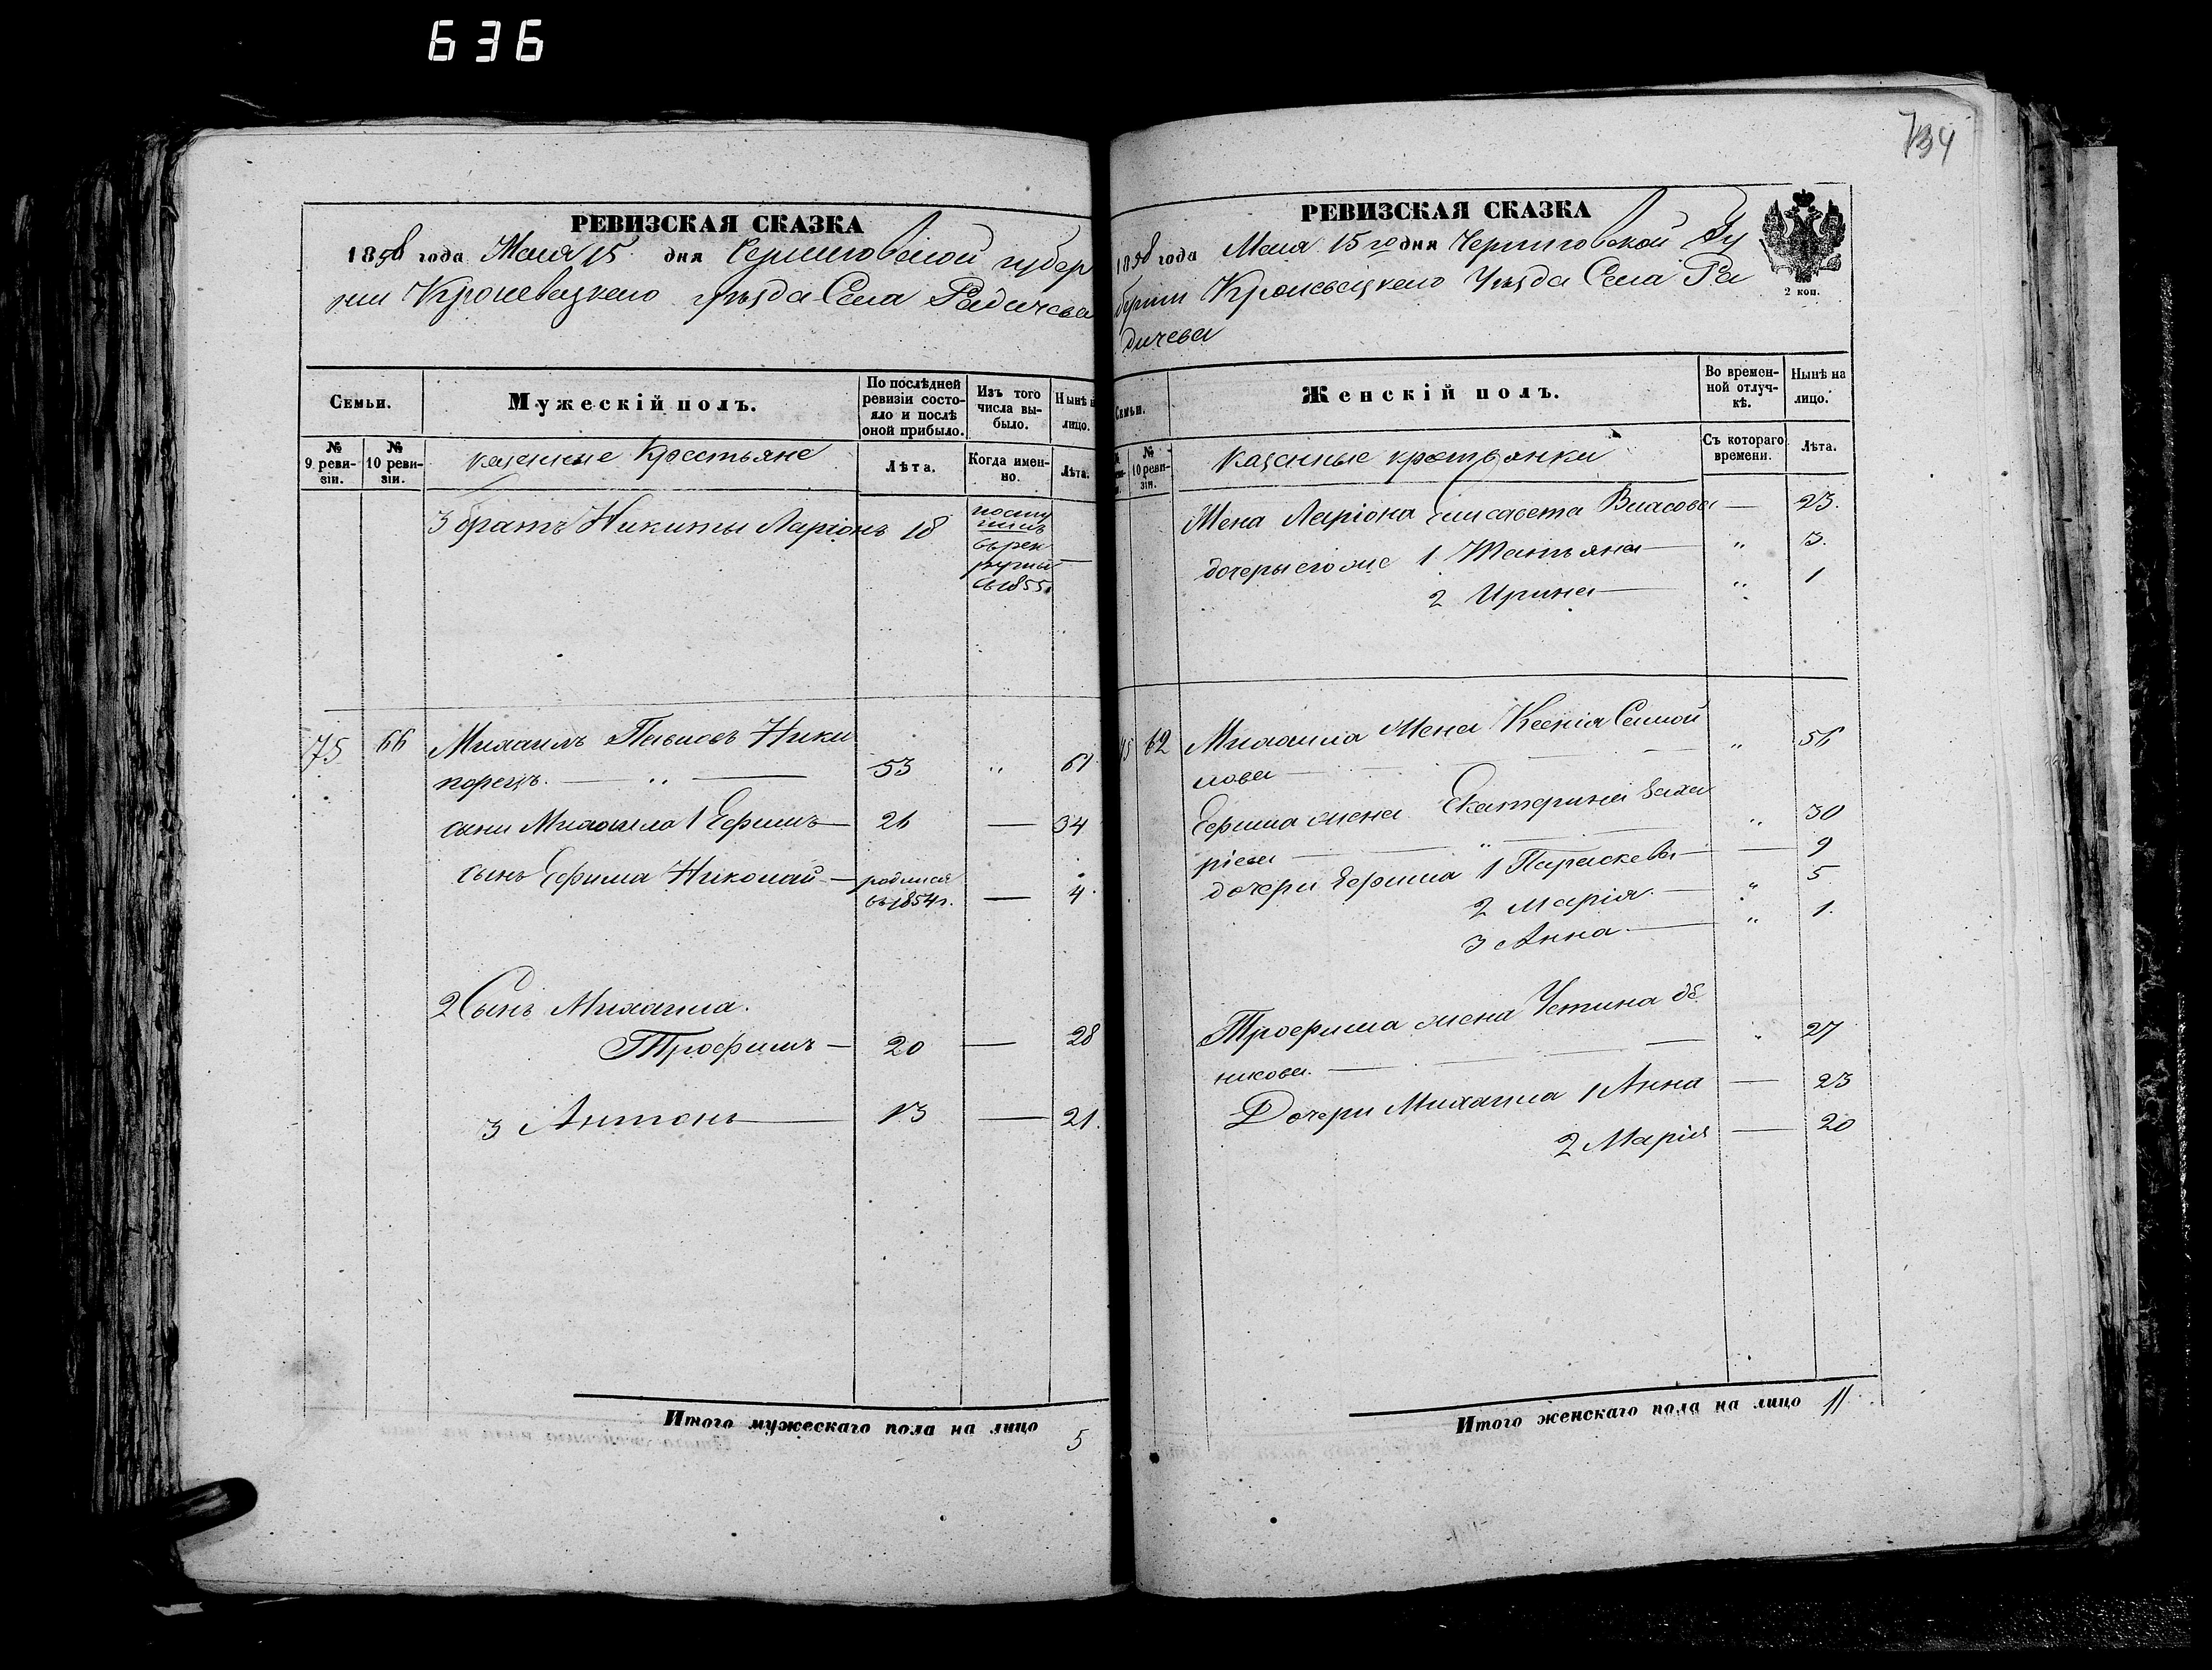 636
РЕВИЗСКАЯ СКАЗКА
1858 года Мая 15 дня Черниговской губер
нии Кролевецкого уѣзда Села Радичева
Семьи.
Мужескій полъ.
По послѣдней ревизіи состояло и послѣ оной прибыло.
Изъ того числа выбыло.
Нынѣ н
лицо.
№ 9 ревизіи.
№ 10 ревизіи.
казенные Крестьяне
Лѣта.
Когда именно.
Лѣта.
3 братъ Никиты Ларіонъ 18
посту
пилъ
въ рек
руты
въ 1855
75 66 Михаилъ Ники
порецъ. — „ — 53 „ 61
сыни Михаила 1 Ефимъ — 26 — 34
сынъ Ефима Николай — родился
въ 1854 г. — 4
2 Сынъ Михаила.
Трофимъ — 20 — 28
3 Антонъ — 13 — 21.
Итого мужескаго пола на лицо
5
734
РЕВИЗСКАЯ СКАЗКА
1858 года Мая 15го дня Черниговской Гу
берніи Кролевецкого Уѣзда Села Ра
дичева
2 коп.
Семьи.
Женскій полъ.
Во временной отлучкѣ.
Нынѣ на лицо.
№ 10 ревизіи.
казенные кретьянки
Съ котораго времени.
Лѣта.
Жена Ларіона Елисавета Власова — 23.
дочеры его же 1 Татьяна — „ 3.
2 Ирина — „ 1
75 62 Михаила Жена Ксенія Самой
лова — „ 56
Ефима жена Екатерина Заха
ріева — „ — „ 30
дочери Ефима 1 Параскева — — 9
2 Марія. — „ 5
3 Анна. — „ 1.
Трофима жена Устина де
никова. — „ 27
Дочери Михаила 1 Анна — 23
2 Марія — 20
Итого женскаго пола на лицо 11